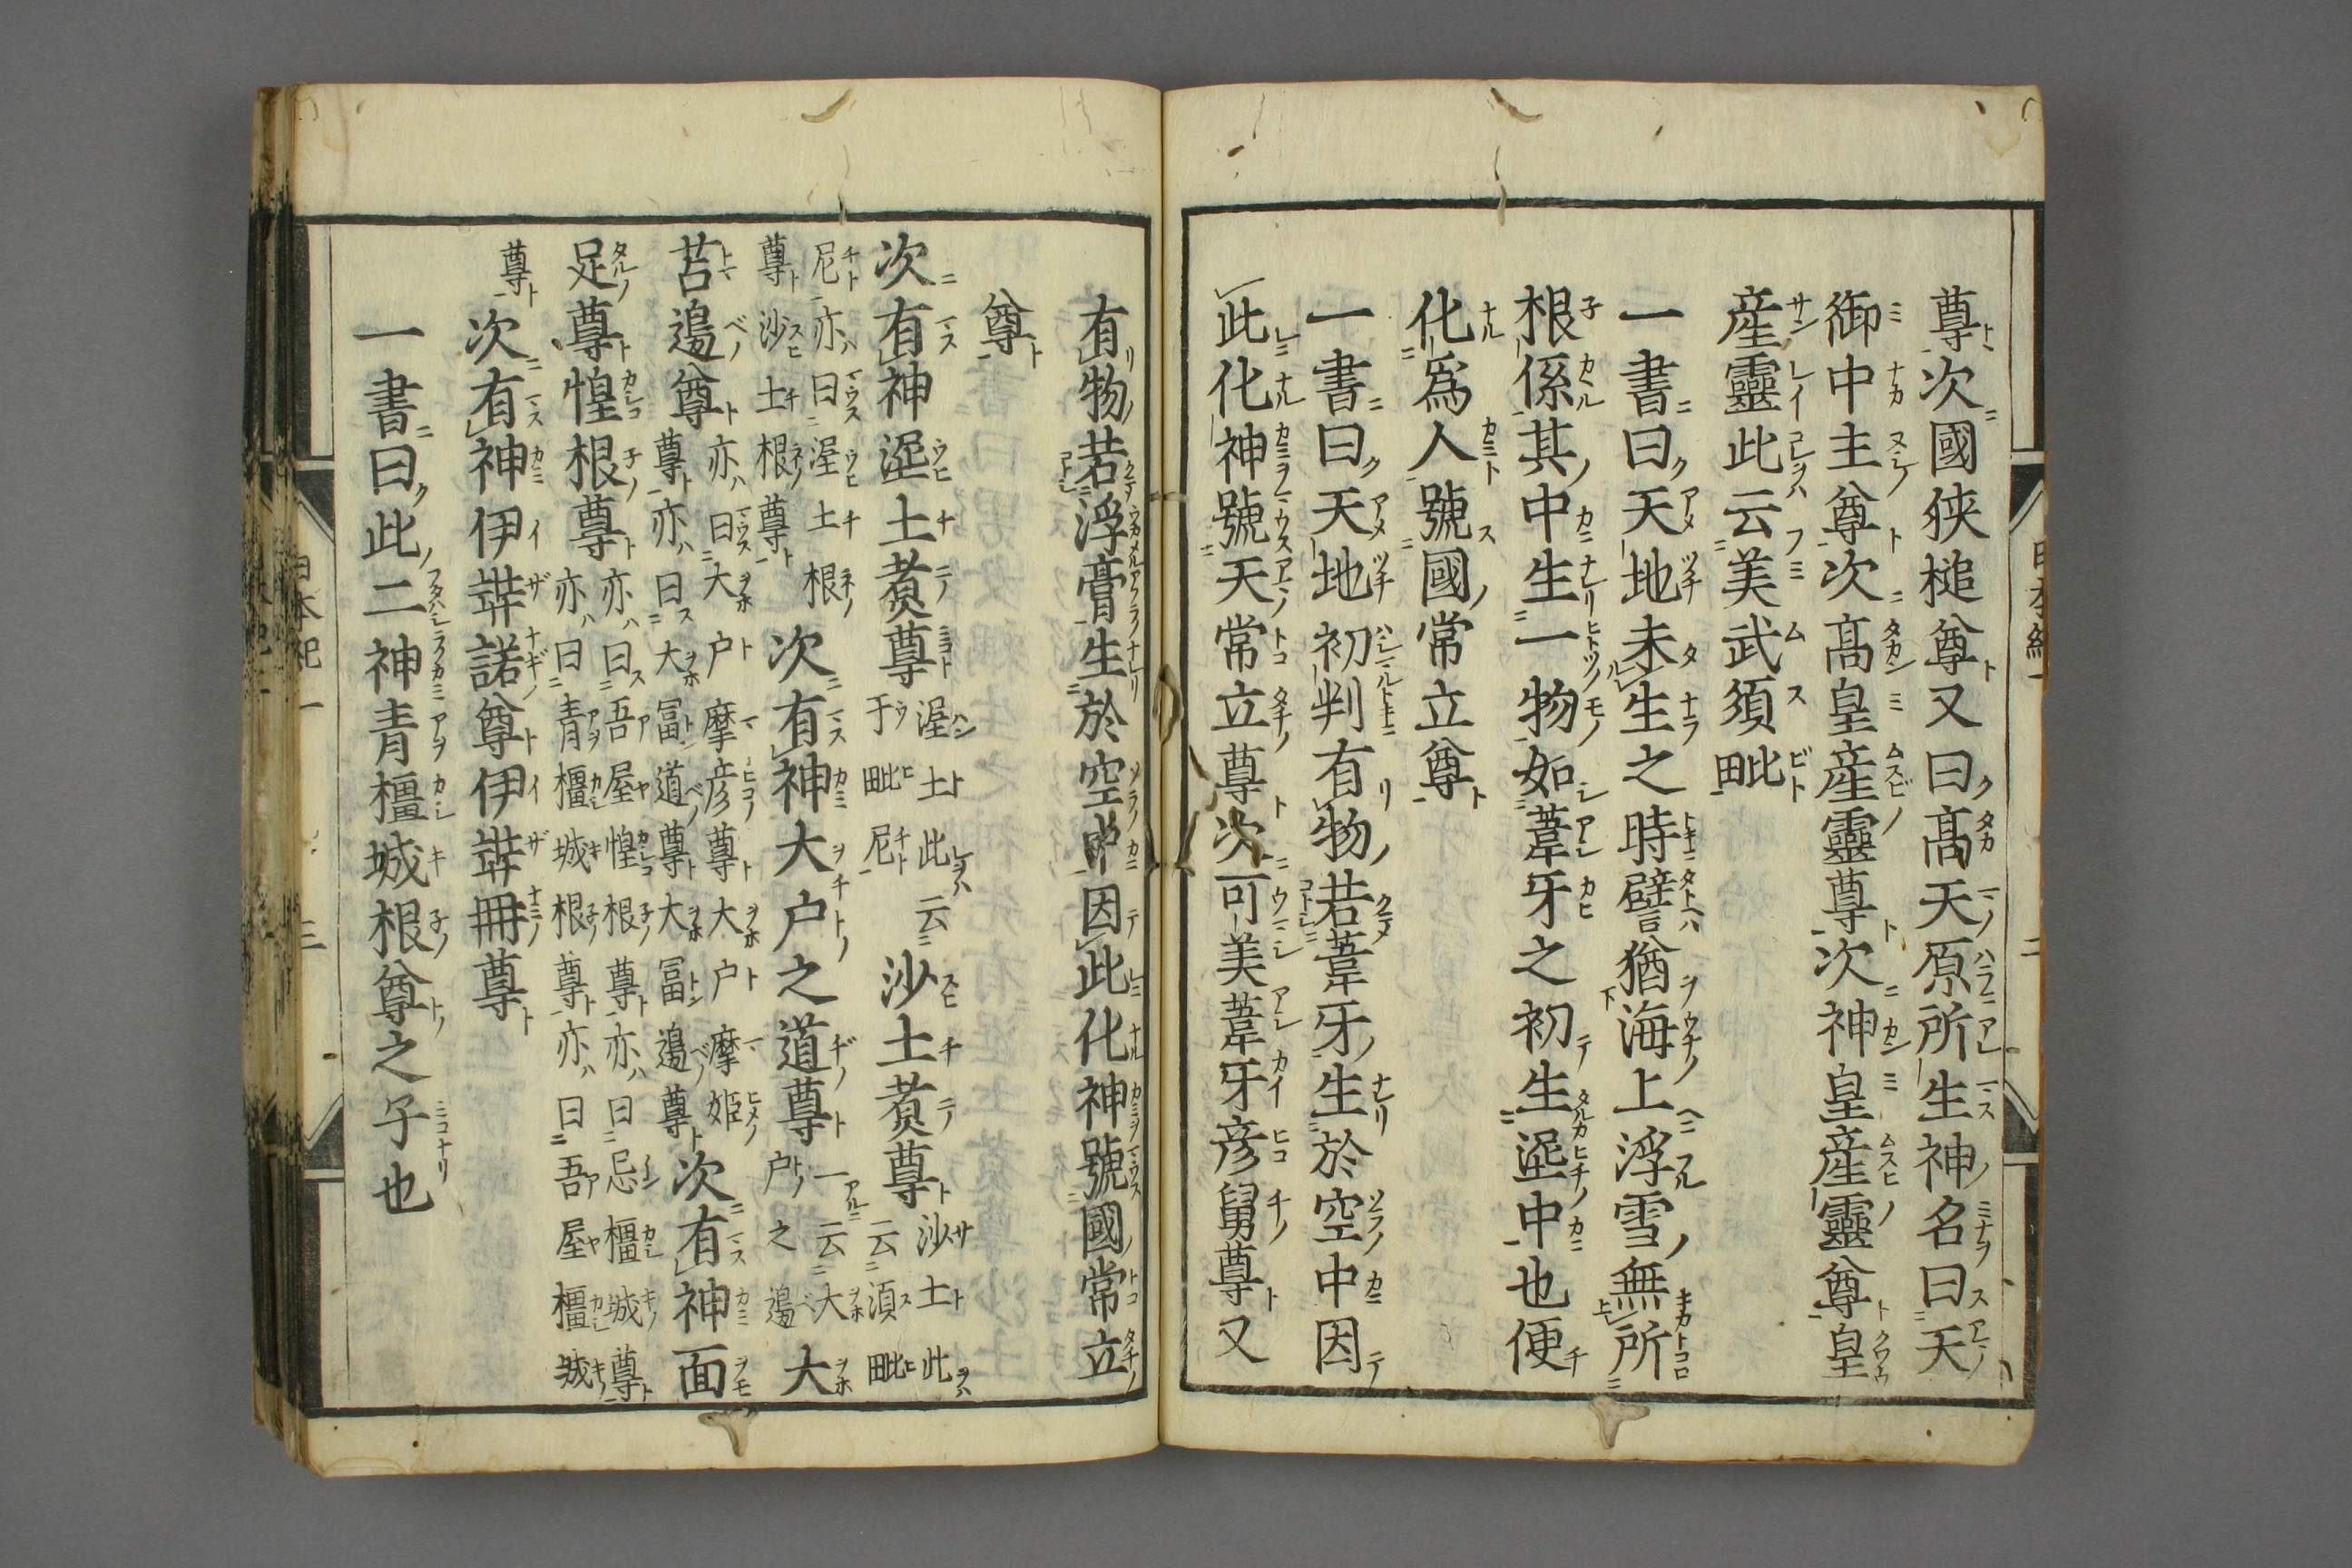 尊次國狹槌尊又曰髙天原所生神名曰天
御中主尊次髙皇産靈尊次神皇産靈尊皇
産靈此云美武須毗
一書曰天地未生之時譬猶海上浮雪無所
根係其中生一物如葦牙之初生埿中也便
化爲人號國常立尊
一書曰天地初判有物若葦牙生於空中因
此化神號天常立尊次可美葦牙彦舅尊又
有物若浮膏生於空中因此化神號國常立
尊
次有神埿土煑尊渥土此云于毗尼沙土煑尊沙土此云須毗
尼亦曰渥土根尊沙土根尊次有神大户之道尊一云大户之邉大
苫邉尊亦曰大户摩彦尊大户摩姫尊亦曰大冨道尊大冨邉尊次有神面
足尊惶根尊亦曰吾屋惶根尊亦曰忌橿城尊亦曰青橿城根尊亦曰吾屋橿城
尊次有神伊弉諾尊伊弉冊尊
一書曰此二神青橿城根尊之子也
日本紀一
三